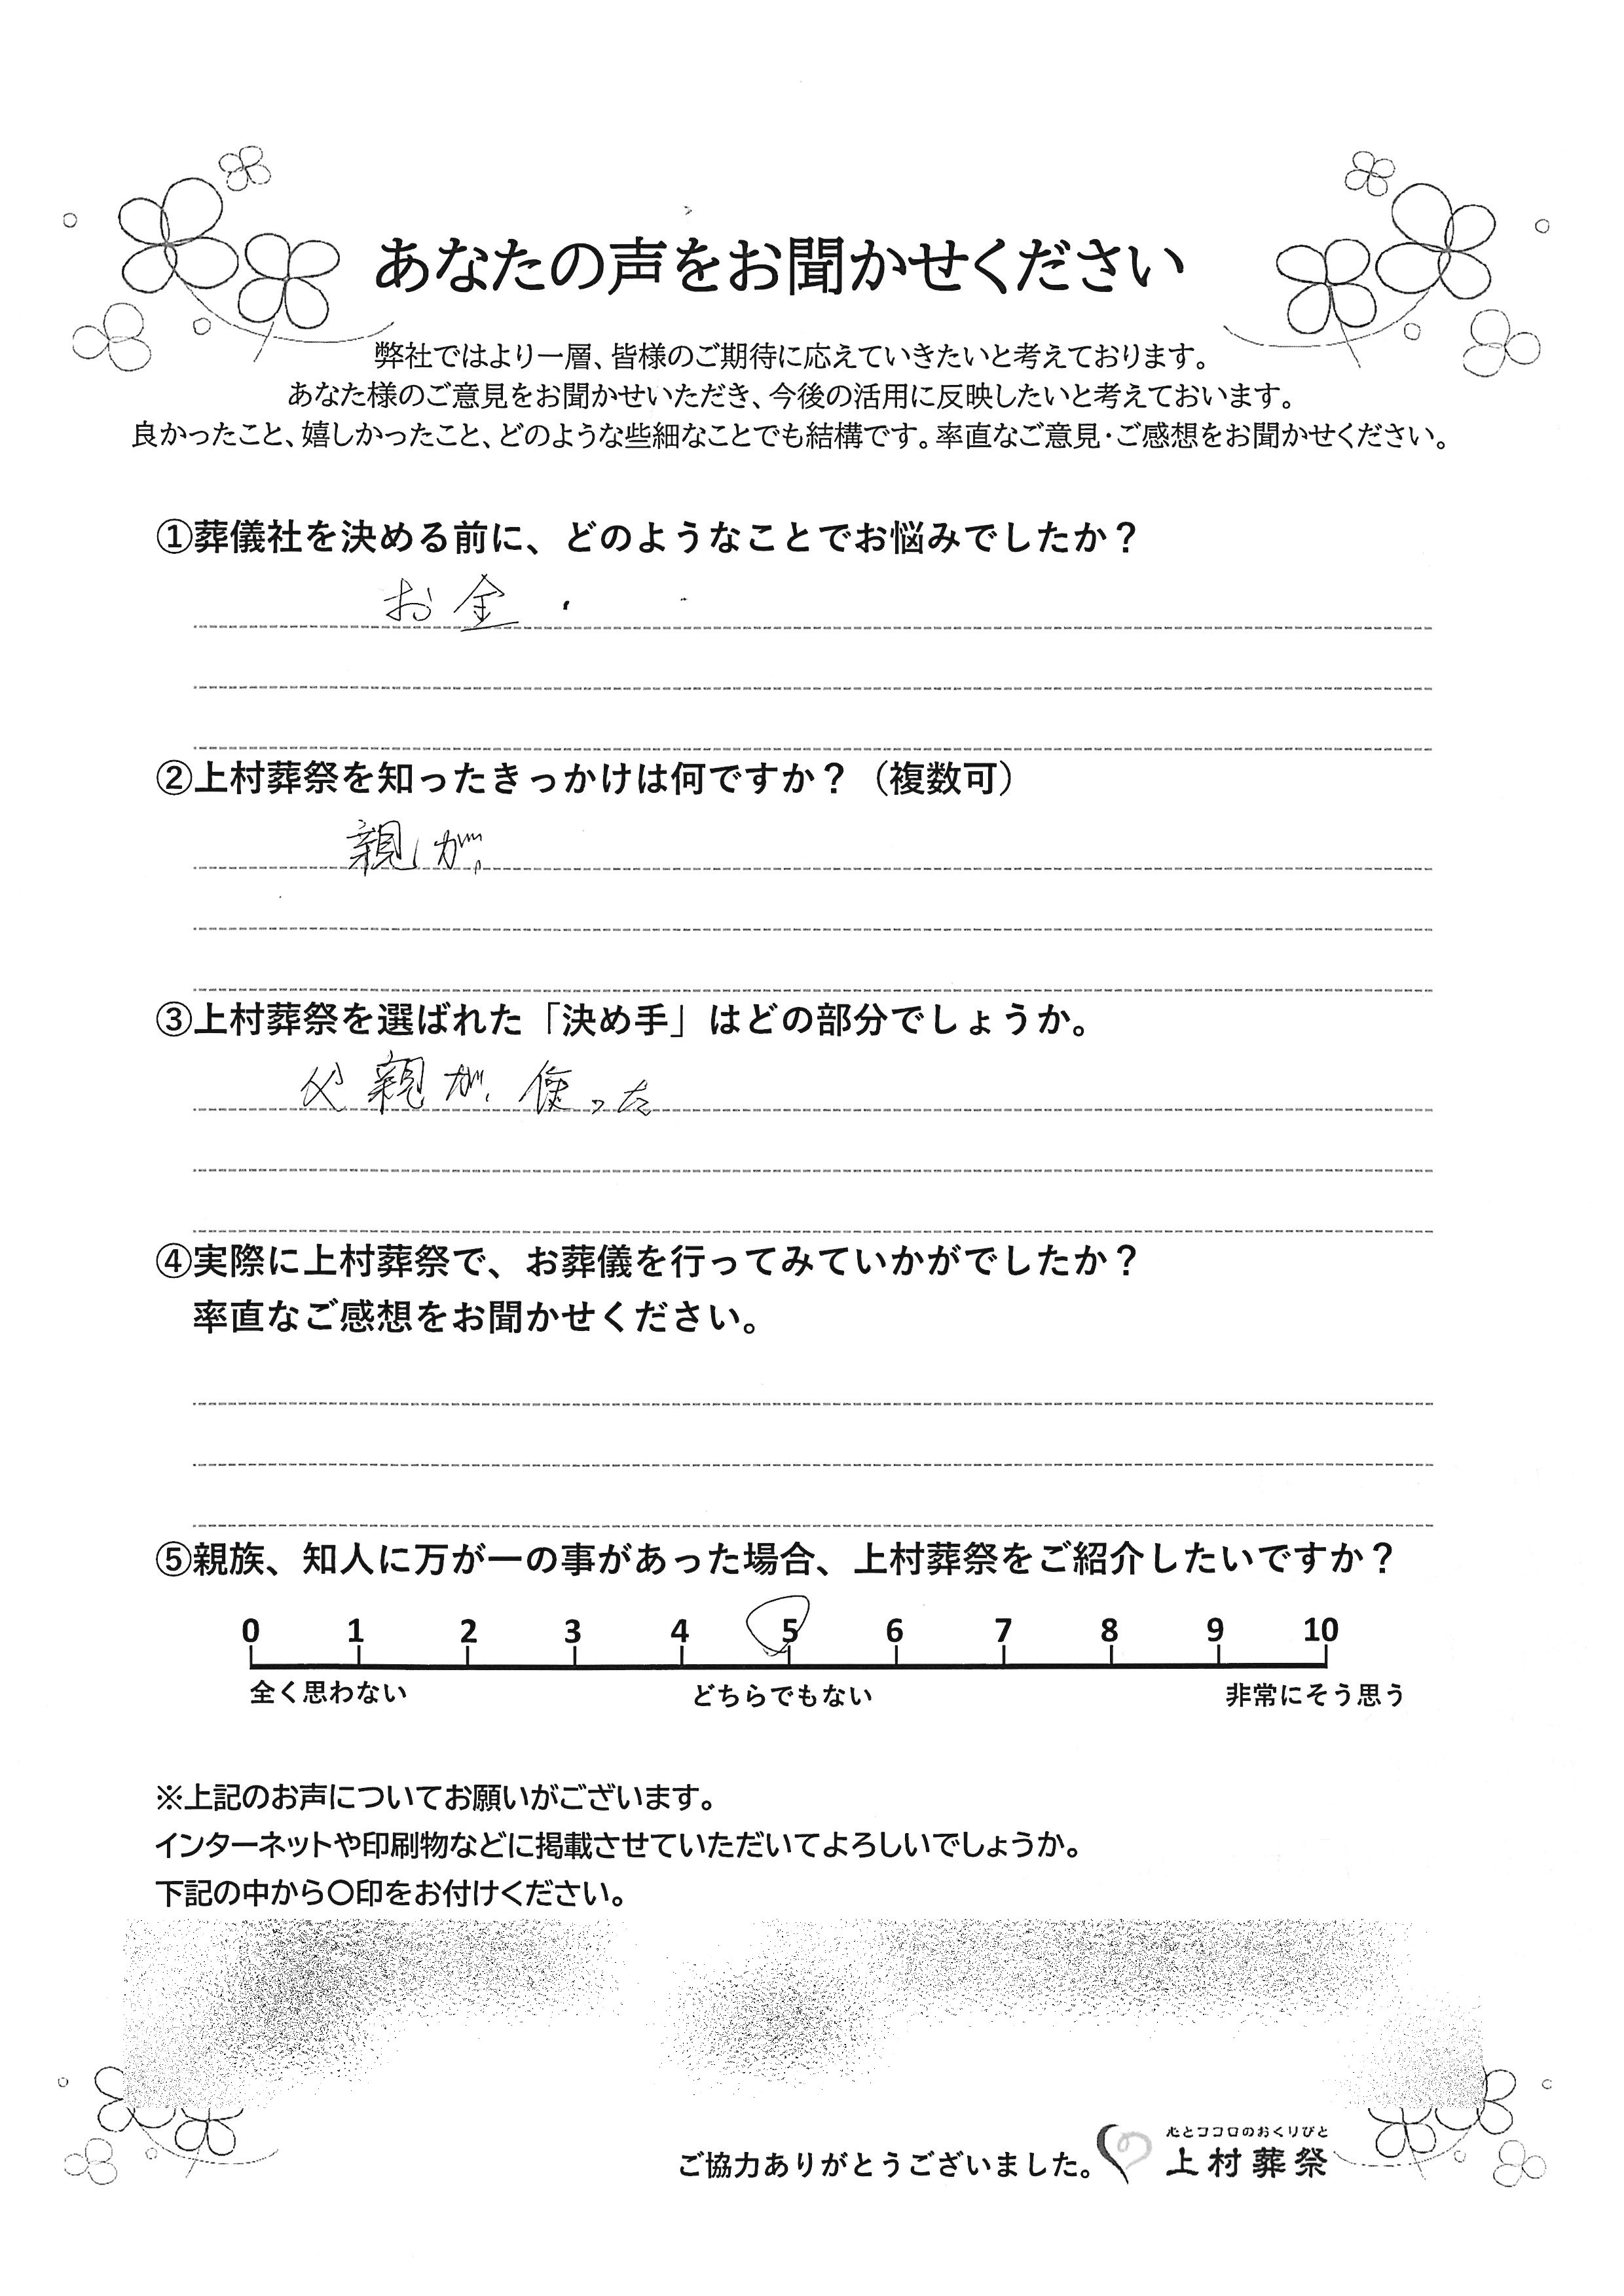 あなたの声をお聞かせください
弊社ではより一層、皆様のご期待に応えていきたいと考えております。
あなた様のご意見をお聞かせいただき、今後の活用に反映したいと考えておいます。
良かったこと、嬉しかったこと、どのような些細なことでも結構です。率直なご意見・ご感想をお聞かせください。
①葬儀社を決める前に、どのようなことでお悩みでしたか？
お金
②上村葬祭を知ったきっかけは何ですか？（複数可）
親が
③上村葬祭を選ばれた「決め手」はどの部分でしょうか。
父親が使った
④実際に上村葬祭で、お葬儀を行ってみていかがでしたか？
率直なご感想をお聞かせください。
⑤親族、知人に万が一の事があった場合、上村葬祭をご紹介したいですか？
0 1 2 3 4 5 6 7 8 9 10
全く思わない どちらでもない 非常にそう思う
※上記のお声についてお願いがございます。
インターネットや印刷物などに掲載させていただいてよろしいでしょうか。
下記の中から〇印をお付けください。
心とココロのおくりびと
ご協力ありがとうございました。 上村葬祭